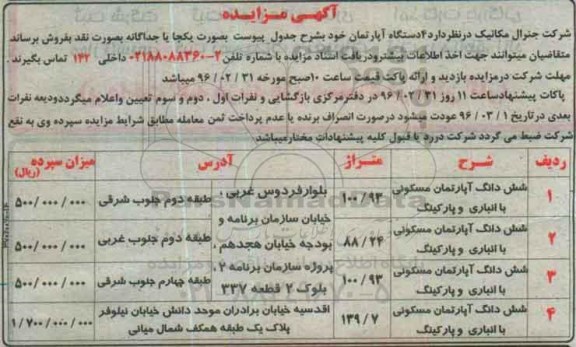 آگهی مزایده
شرکت جنرال مکانیک درنظردارد ۴دستگاه آپارتمان خود بشرح جدول پیوست بصورت یکجا یا جداگانه بصورت نقد بفروش برساند.
متقاضیان میتوانند جهت اخذ اطلاعات بیشترودریافت اسناد مزایده با شماره تلفن ۲-۰۲۱۸۸۰۸۸۳۶۰ داخلی ۱۴۲ تماس بگیرند.
مهلت شرکت درمزایده بازدید و ارائه پاکت قیمت ساعت ۱۰صبح مورخه ۳۱ / ۰۲ / ۹۶ میباشد
پاکات پیشنهادساعت ۱۱ روز ۳۱ / ۰۲ / ۹۶ در دفترمرکزی بازگشایی و نفرات اول ، دوم و سوم تعیین واعلام میگرددودیعه نفرات
بعدی درتاریخ ۱ / ۰۳ / ۹۶ عودت میشود درصورت انصراف برنده یا عدم پرداخت ثمن معامله مطابق شرایط مزایده سپرده وی به نفع
شرکت ضبط می گردد شرکت دررد یا قبول کلیه پیشنهادات مختارمیباشد
ردیف شرح متراژ آدرس میزان سپرده (ریال)
۱ شش دانگ آپارتمان مسکونی با انباری و پارکینگ ۱۰۰/۹۳ بلوارفردوس غربی، طبقه دوم جلوب شرقی ۵۰۰/۰۰۰/۰۰۰
خیابان سازمان برنامه و
۲ شش دانگ آپارتمان مسکونی با انباری و پارکینگ ۸۸/۲۴ بودجه خیابان هجدهم ، طبقه دوم جلوب غربی ۵۰۰/۰۰۰/۰۰۰
پروژه سازمان برنامه ۲،
۳ شش دانگ آپارتمان مسکونی با انباری و پارکینگ ۱۰۰/۹۳ بلوک ۲ قطعه ۳۳۷ طبقه چهارم جلوب شرقی ۵۰۰/۰۰۰/۰۰۰
۴ شش دانگ آپارتمان مسکونی با انباری و پارکینگ ۱۳۹/۷ اقدسیه خیابان برادران موحد دانش خیابان نیلوفر پلاک یک طبقه همکف شمال میانی ۱/۷۰۰/۰۰۰/۰۰۰